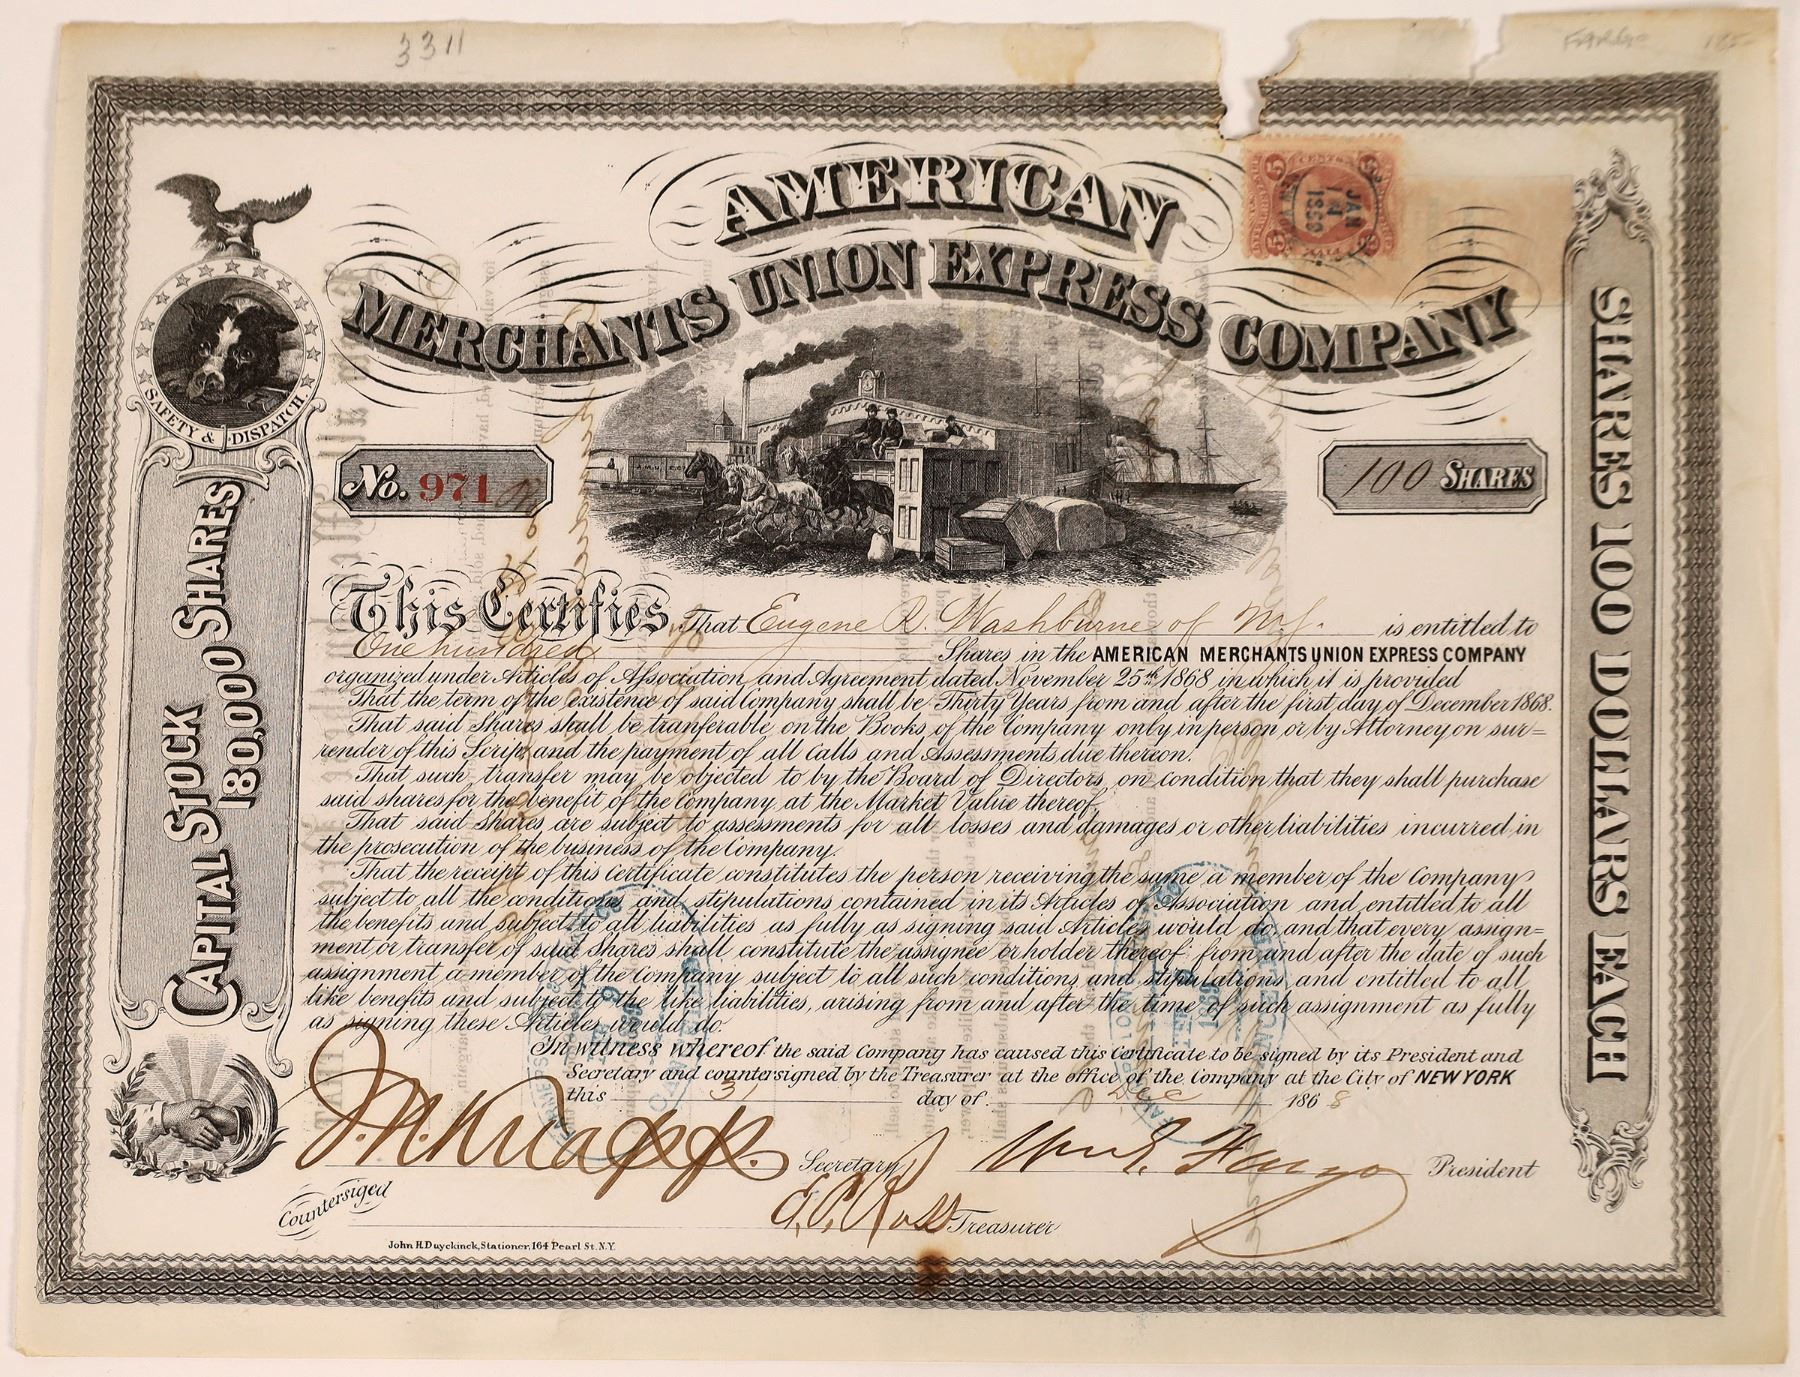 3311
Fargo
AMERICAN
MERCHANTS UNION EXPRESS COMPANY
5 CENTS 5
JAN
1869
SAFETY & DISPATCH.
A.M.U.
No. 971
100 SHARES
CAPITAL STOCK 180,000 SHARES
SHARES 100 DOLLARS EACH
This Certifies That Eugene R. Washburne of N.Y. is entitled to
One hundred Shares in the AMERICAN MERCHANTS UNION EXPRESS COMPANY
organized under Articles of Association and Agreement dated November 25th 1868 in which it is provided
That the term of the existence of said Company shall be Thirty Years from and after the first day of December 1868.
That said Shares shall be tranferable on the Books of the Company only in person or by Attorney on sur=
render of this Scrip and the payment of all Calls and Assessments due thereon.
That such transfer may be objected to by the Board of Directors, on condition that they shall purchase
said shares for the benefit of the Company at the Market Value thereof.
That said Shares are subject to assessments for all losses and damages or other liabilities incurred in
the prosecution of the business of the Company.
That the receipt of this Certificate constitutes the person receiving the same a member of the Company
subject to all the conditions and stipulations contained in its Articles of Association and entitled to all
the benefits and subject to all liabilities as fully as signing said Articles would do, and that every assign=
ment or transfer of said Shares shall constitute the assignee or holder thereof from and after the date of such
assignment a member of the Company subject to all such conditions and stipulations and entitled to all
like benefits and subject to the like liabilities, arising from and after the time of such assignment as fully
as signing these Articles would do.
In witness whereof the said Company has caused this Certificate to be signed by its President and
Secretary and countersigned by the Treasurer at the office of the Company at the City of NEW YORK
this 3 day of Dec 1868
J. N. Knapp Secretary Wm G. Fargo President
Countersiged
E. C. Ross Treasurer
John H. Duyckinck, Stationer, 164 Pearl St. N.Y.